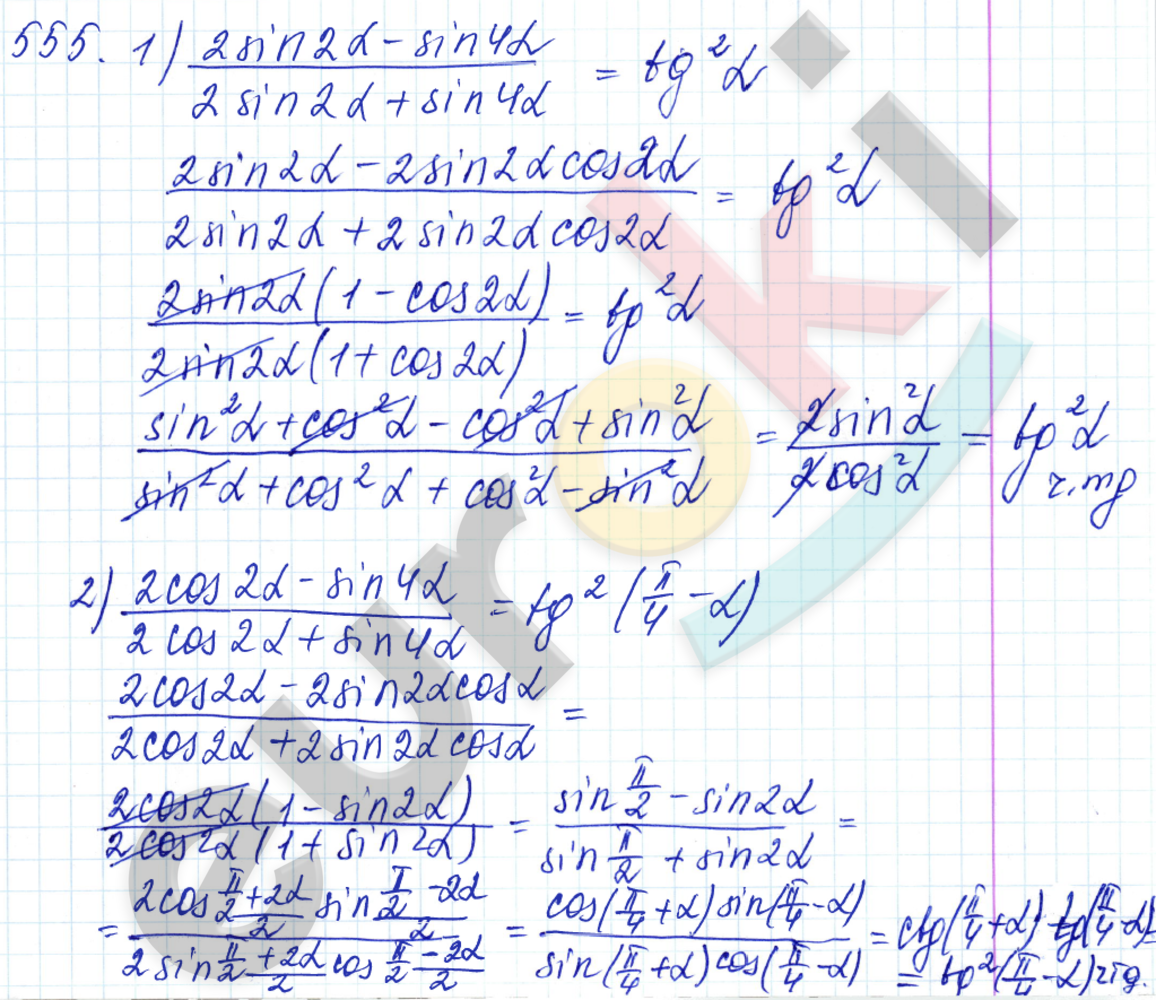 555. 1) (2sin2α - sin4α)/(2sin2α + sin4α) = tg²α
(2sin2α - 2sin2αcos2α)/(2sin2α + 2sin2αcos2α) = tg²α
(2sin2α(1 - cos2α))/(2sin2α(1 + cos2α)) = tg²α
(sin²α + cos²α - cos²α + sin²α)/(sin²α + cos²α + cos²α - sin²α) = (2sin²α)/(2cos²α) = tg²α
ч.тд
2) (2cos2α - sin4α)/(2cos2α + sin4α) = tg²(π/4 - α)
(2cos2α - 2sin2αcosα)/(2cos2α + 2sin2αcosα) =
(2cos2α(1 - sin2α))/(2cos2α(1 + sin2α)) = (sin π/2 - sin2α)/(sin π/2 + sin2α) =
= (2cos (π/2 + 2α)/2 sin (π/2 - 2α)/2)/(2sin (π/2 + 2α)/2 cos (π/2 - 2α)/2) = (cos(π/4 + α) sin(π/4 - α))/(sin(π/4 + α) cos(π/4 - α)) = ctg(π/4 + α) tg(π/4 - α) =
= tg²(π/4 - α) чтд.
euroki